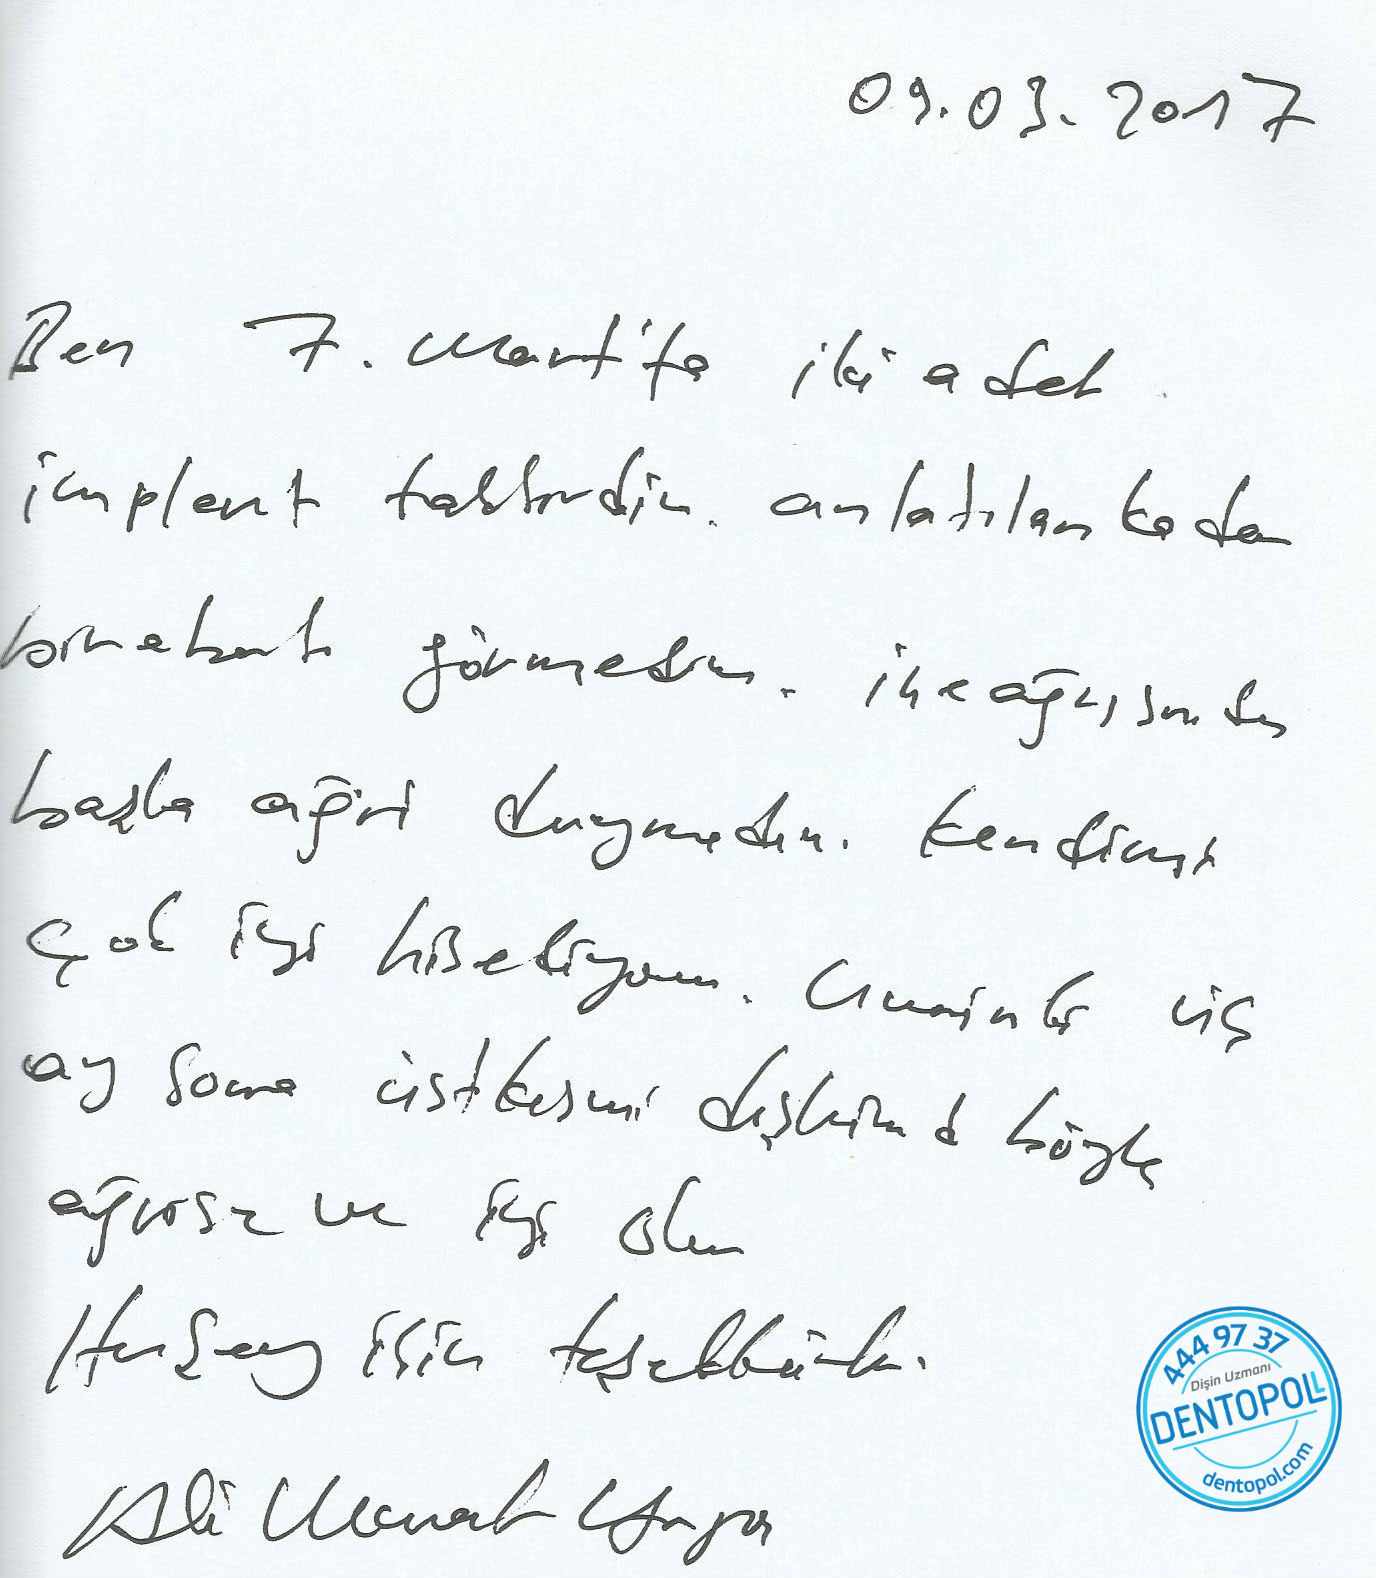 09.03.2017
Ben 7. Mart'ta iki adet
implant taktırdım. anlatılan kadar
görmedim. iğne ağrısından
başka ağrı duymadım. kendimi
çok iyi hissediyorum. Umarım üç
ay sonra üst kısmı da böyle
ağrısız ve iyi olur
Her şey için teşekkürler.
Ali Murat
444 97 37
Dişin Uzmanı
DENTOPOLL
dentopol.com